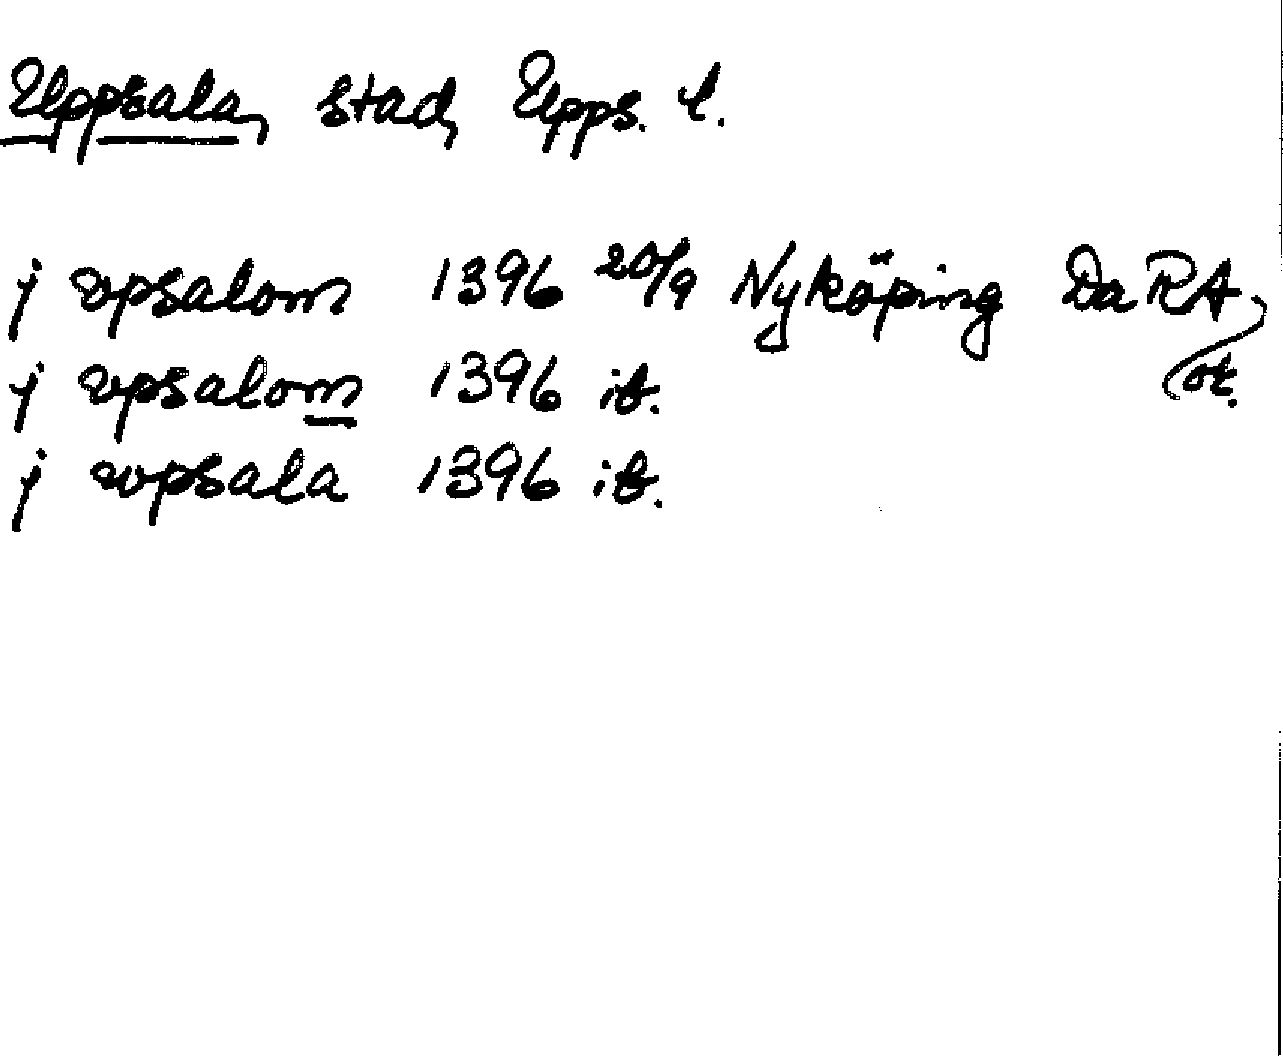 Uppsala, stad, Upps. l.
j vpsalom 1396 20/9 Nyköping Da RA,
or.
j vpsalom 1396 ib.
j wpsala 1396 ib.